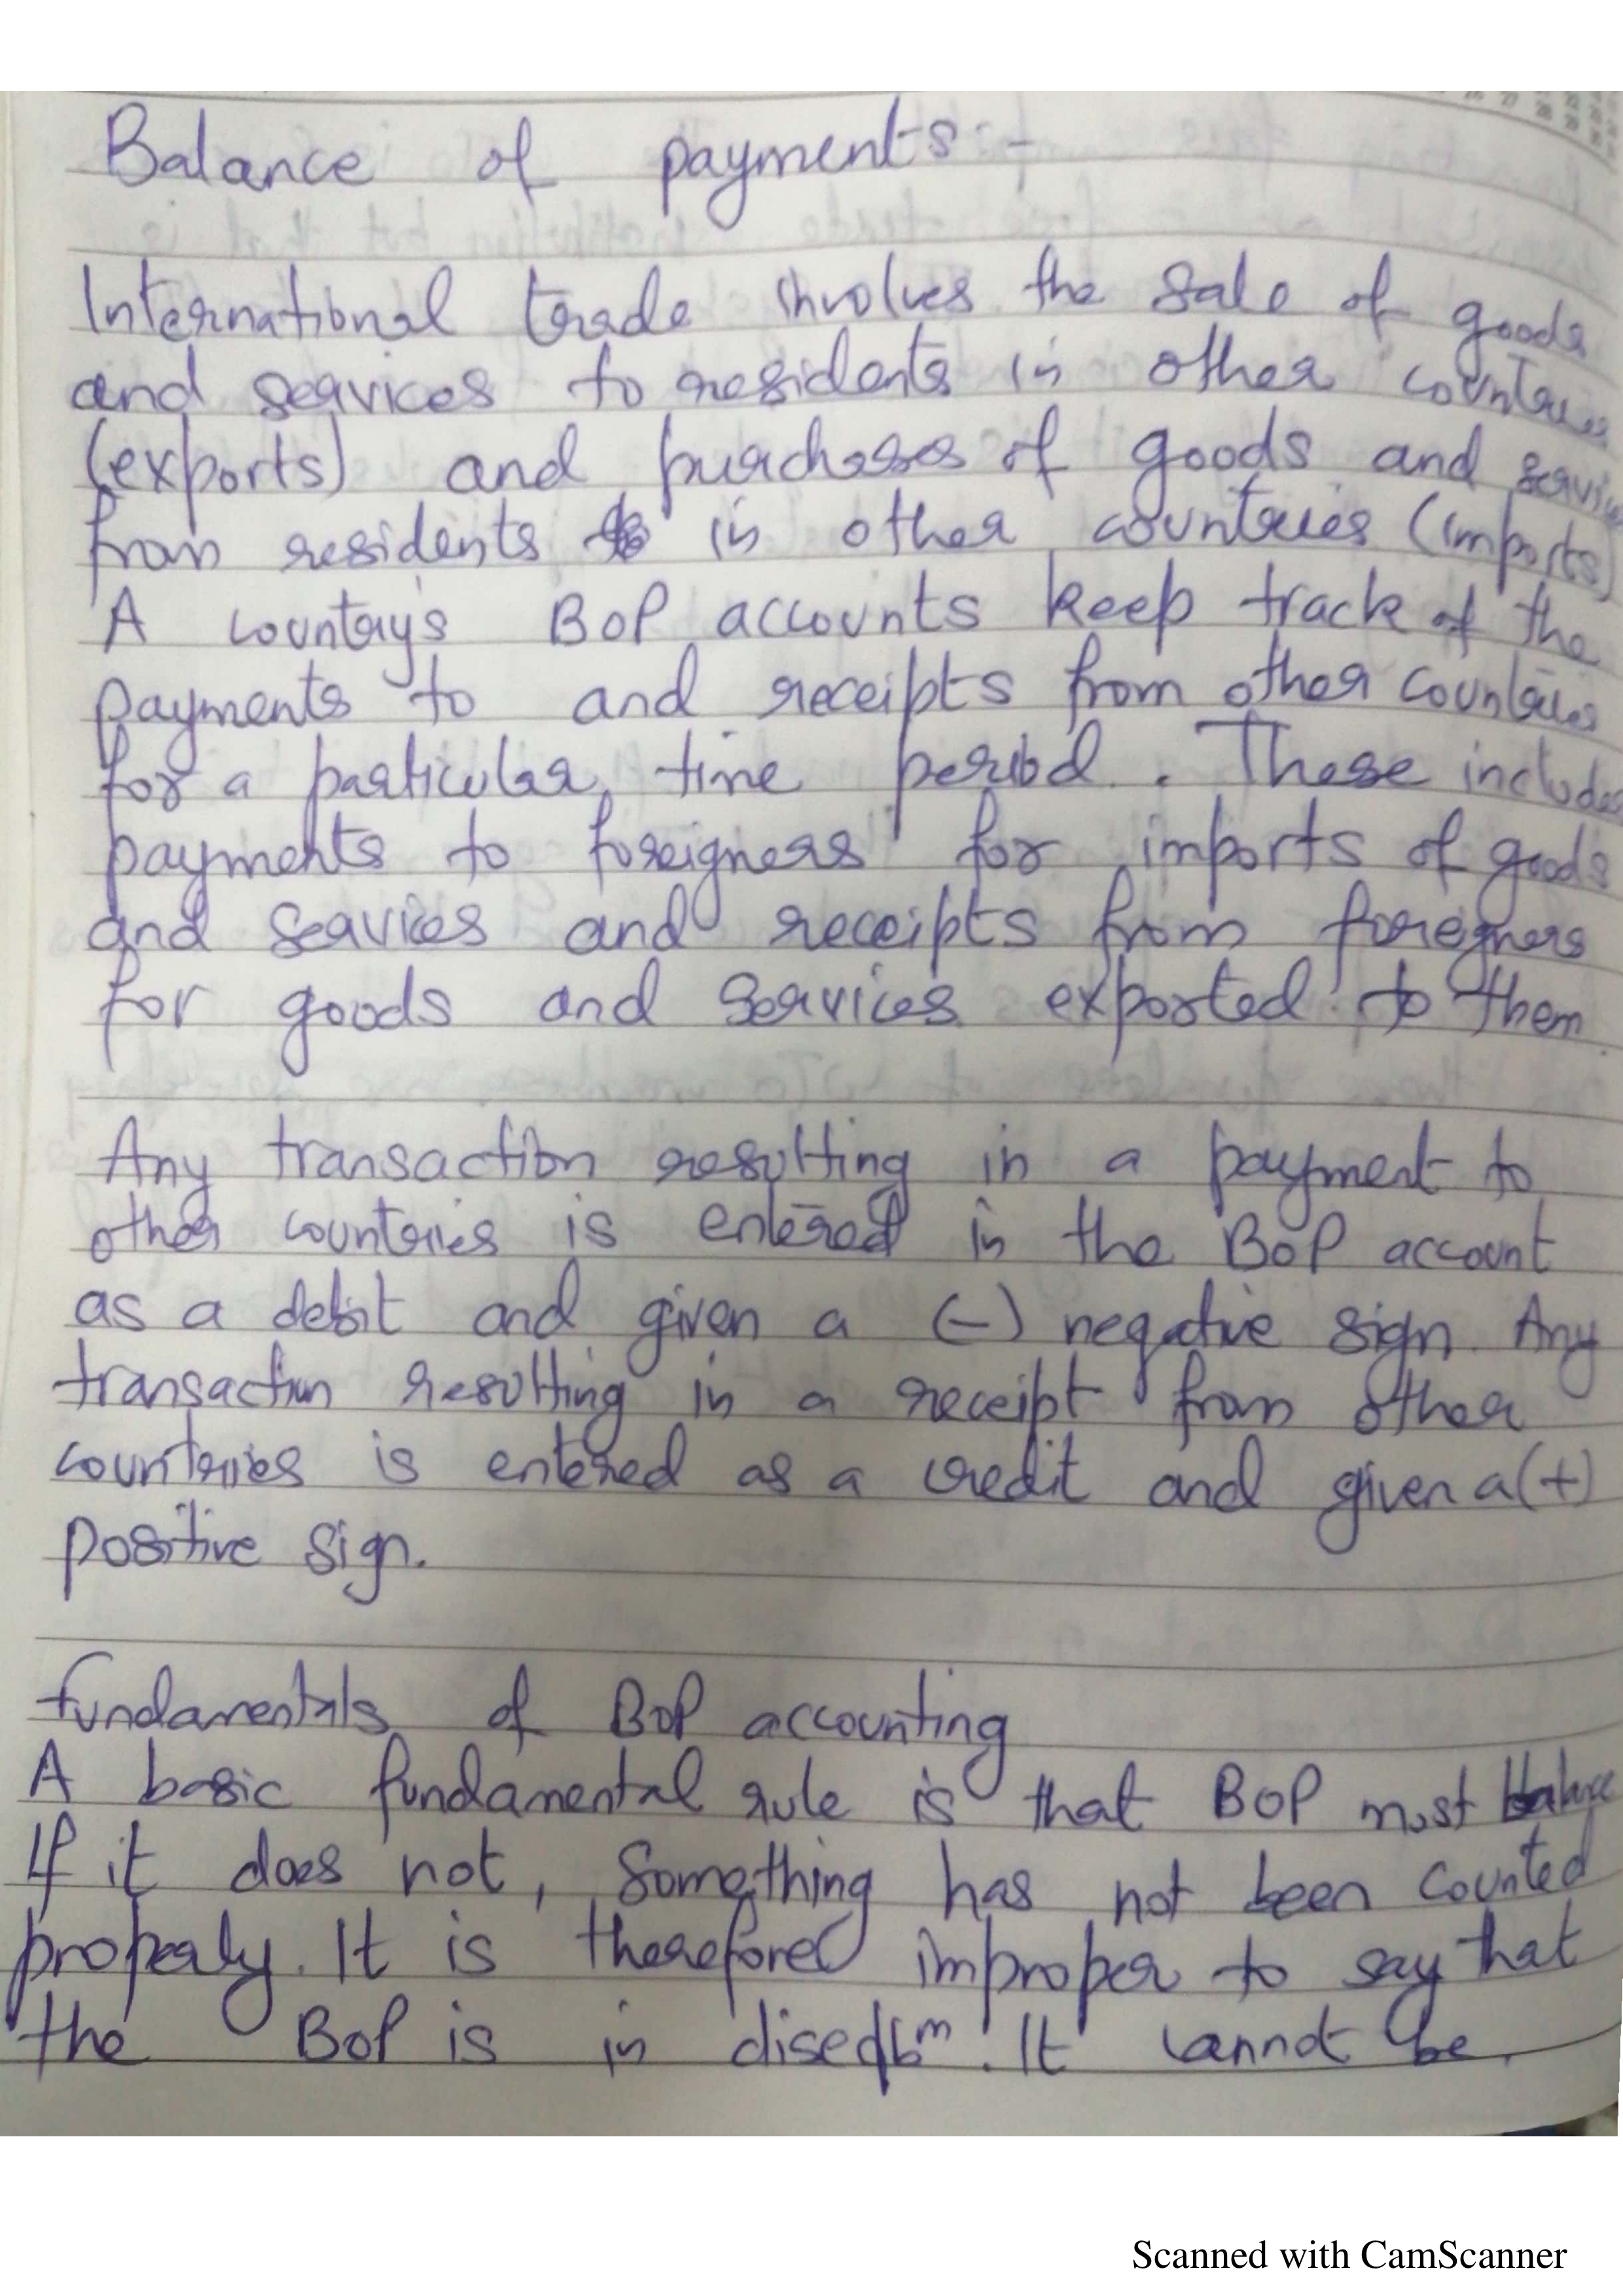 Balance of payments:-
International trade involves the sale of goods
and services to residents in other countries
(exports) and purchases of goods and services
from residents in other countries (imports)
A country's BOP accounts keep track of the
payments to and receipts from other countries
for a particular time period. These includes
payments to foreigners for imports of goods
and services and receipts from foregners
for goods and services exported to them.
Any transaction resulting in a payment to
other countries is entered in the BOP account
as a debit and given a (-) negative sign. Any
transaction resulting in a receipt from other
countries is entered as a credit and given a (+)
positive sign.
Fundamentals of BOP accounting
A basic fundamental rule is that BOP must balance
If it does not, Something has not been counted
properly. It is therefore improper to say that
the BOP is in diseqbm. It cannot be.
Scanned with CamScanner